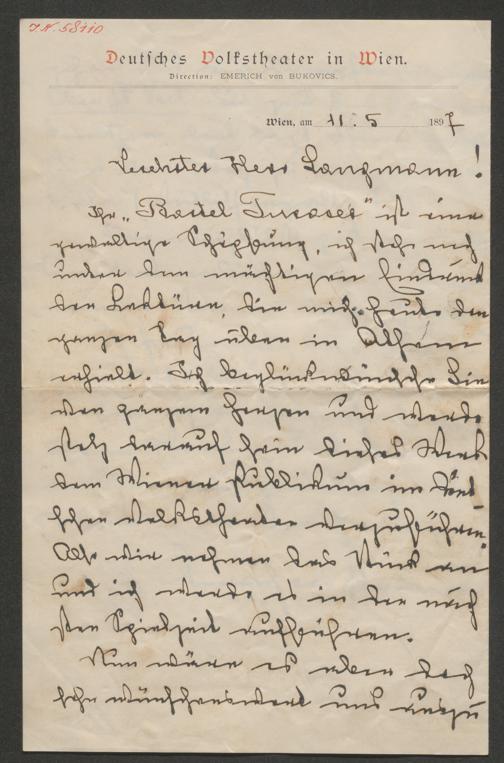 J.N. 58110
Deutsches Volkstheater in Wien.
Direction: EMERICH von BUKOVICS.
Wien, am 11. 5 1897
Geehrter Herr Langmann!
Ihr „Bartel Turaser“ ist eine
gewaltige Schöpfung, ich stehe noch
unter dem mächtigen Eindruck
der Lektüre, die mich heute den
ganzen Tag über in Athem
erhielt. Ich beglückwünsche Sie
von ganzem Herzen und werde
stolz darauf sein dieses Werk
dem Wiener Publikum im Deut
schen Volkstheater vorzuführen.
Also wir nehmen das Stück an
und ich werde es in der näch
sten Spielzeit aufführen.
Nun wäre es aber doch
sehr wünschenswert uns